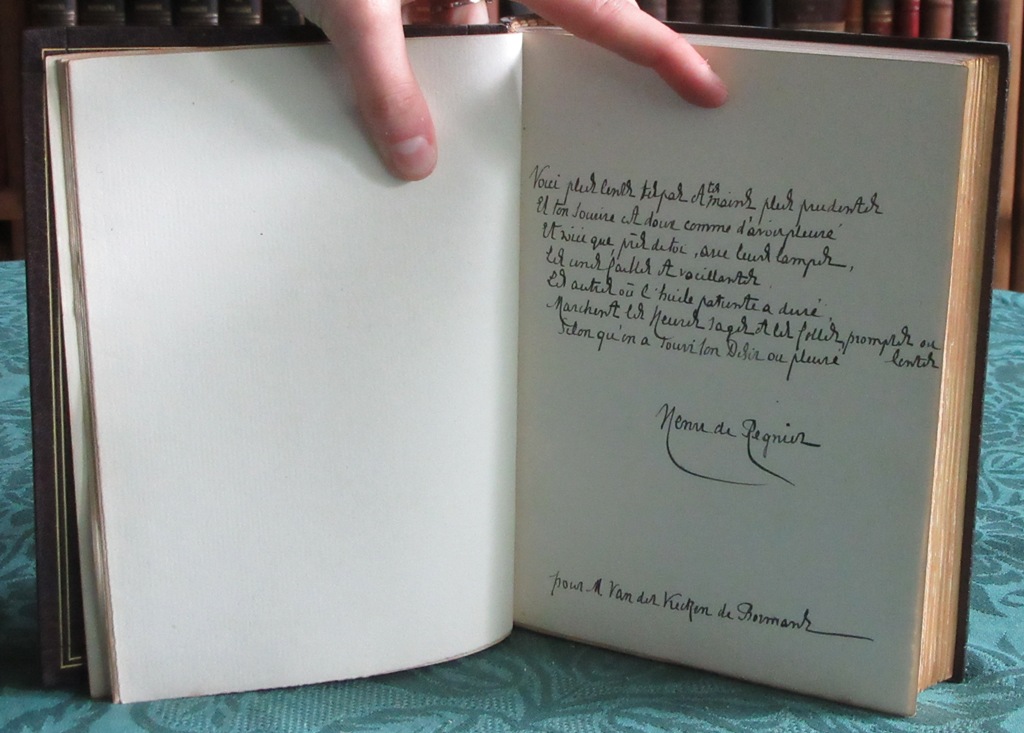 Voici plus lents tes pas et tes mains plus prudentes
Et ton sourire est doux comme d'avoir pleuré
Et voici que, près de toi, avec leurs lampes,
Les unes faibles et vacillantes
Les autres où l'huile patiente a duré,
Marchent les Heures sages et les folles, promptes ou lentes
Selon qu'on a souri son Désir ou pleuré
Henri de Régnier
pour M Van der de Bormans